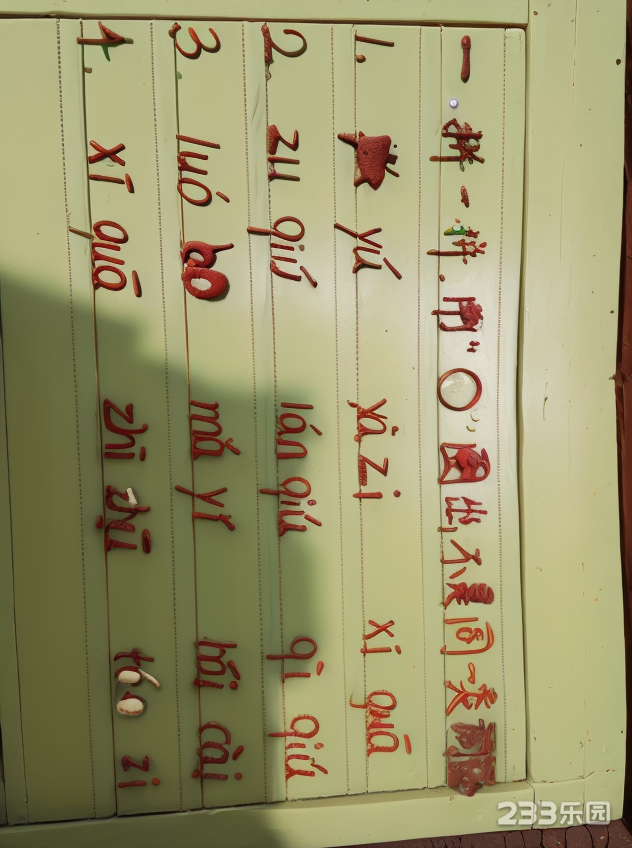 一.拼一拼.用"○"圈出不是同一类
1. yú yā zi xi guā
2. zu qiú lán qiú qì qiú
3. luó bo mǎ yǐ bái cài
4. xī guā zhī zhū táo zi
233乐园